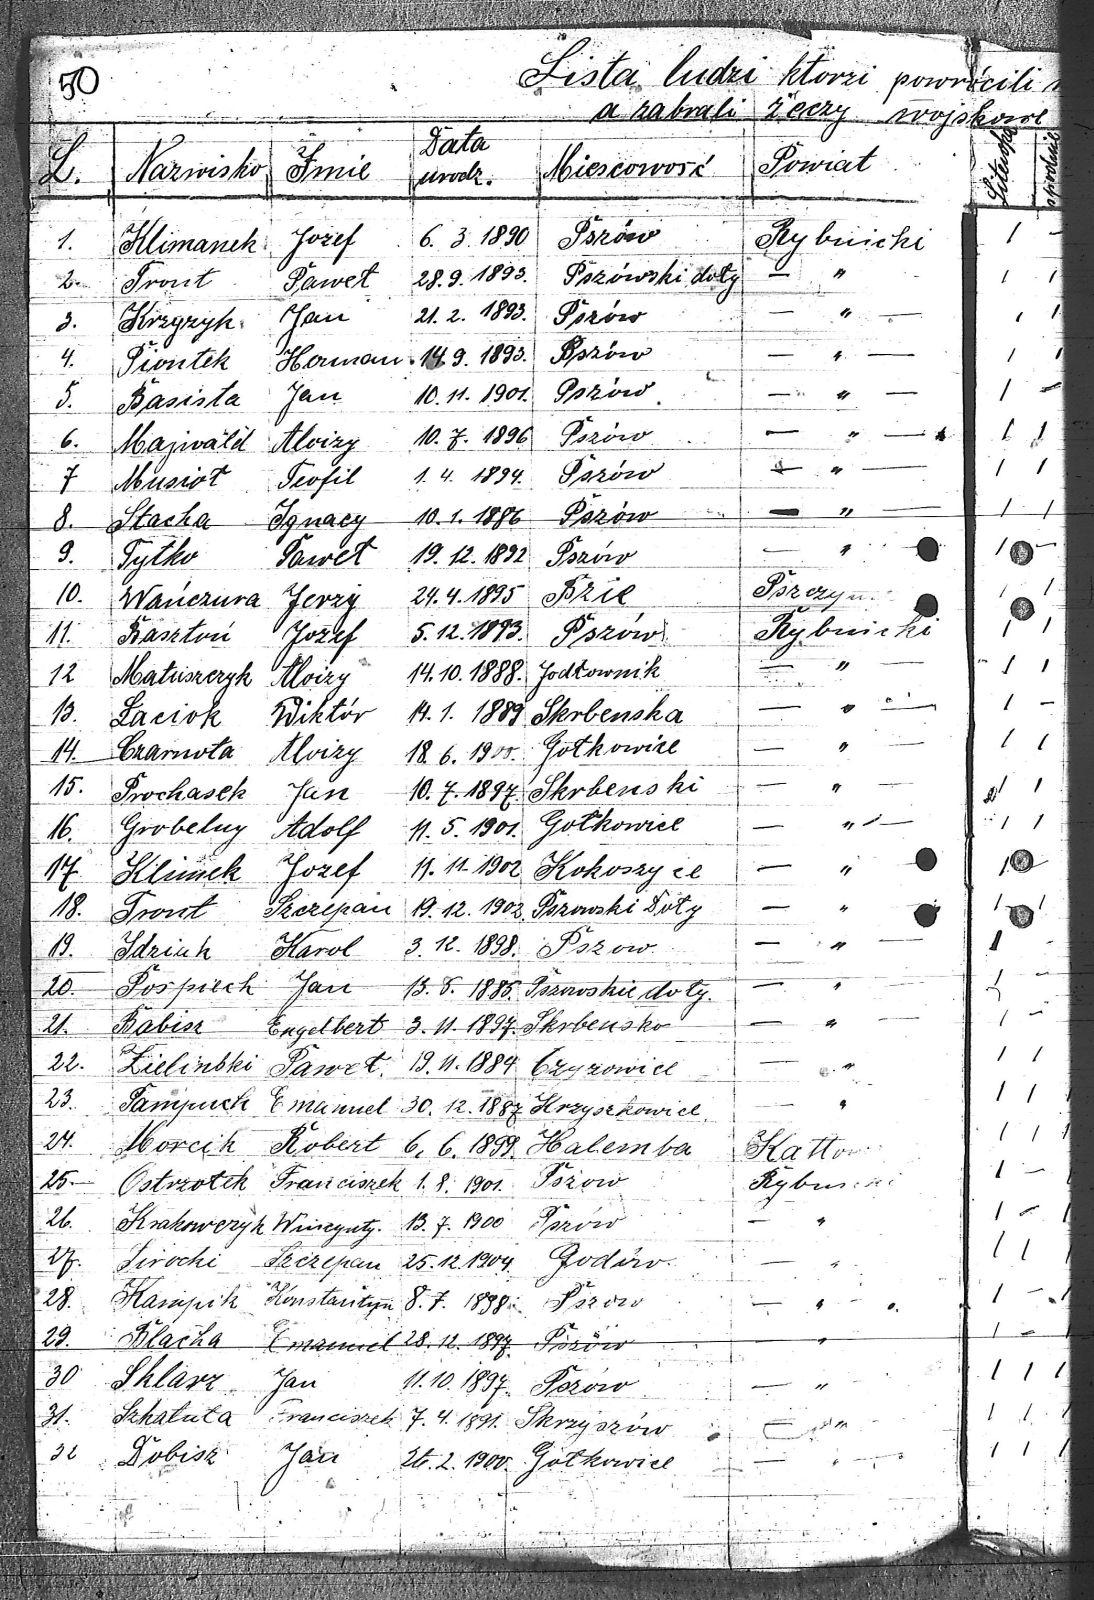 50
Lista ludzi ktorzi powrócili
a zabrali rzeczy wojskowe
L. Nazwisko Imie Data urodz. Miescowość Powiat Litewka spodnie
1. Klimanek Jozef 6. 3. 1890 Pszów Rybnicki 1 -
2. Front Paweł 28. 9. 1893. Pszówski doły — " 1 1
3. Krzyzyk Jan 21. 2. 1893. Pszów — " — 1 1
4. Piontek Herman 14. 9. 1893. Pszów — " — 1 1
5. Basista Jan 10. 11. 1901. Pszów — " — 1 -
6. Majwald Aloizy 10. 7. 1896 Pszów — " — 1 1
7 Musioł Teofil 1. 4. 1894. Pszów — " — 1 1
8. Stacha Ignacy 10. 1. 1886 Pszów — " — 1 1
9. Tytko Paweł 19. 12. 1892 Pszów — " 1 -
10. Wańczura Jerzy 24. 4. 1895 Bzie Pszczyn 1 1
11. Basztoń Jozef 5. 12. 1893. Pszów Rybnicki 1 1
12 Matuszczyk Aloizy 14. 10. 1888. Jodłownik — " — 1 1
13. Łaciok Wiktór 14. 1. 1889 Skrbenska — " — 1 -
14. Czarnota Aloizy 18. 6. 1900. Gołkowice — " — 1 1
15. Prochasek Jan 10. 7. 1897 Skrbenski — " — 1 1
16. Grobelny Adolf 11. 5. 1901. Gołkowice — " — 1 1
17. Klimek Jozef 11. 11. 1902 Kokoszyce — " 1
18. Front Szczepan 19. 12. 1902. Pszowski Doły — " — 1 -
19. Idziak Karol 3. 12. 1898. Pszow — " — 1 1
20. Pospiech Jan 13. 8. 1885. Pszowskie doły. — " — 1
21. Babisz Engelbert 3. 11. 1897. Skrbensko — " — 1 -
22. Zielinbki Paweł. 19. 11. 1884 Czyzowice — " 1 1
23. Pampuch Emanuel 30. 12. 1887 Krzyszkowice — " 1 1
24. Morcik Robert 6. 6. 1899. Halemba Katto 1 1
25 Ostrzołek Franciszek 1. 8. 1901. Pszow Rybnicki 1 -
26. Krakowczyk Winzynty. 13. 7. 1900 Pszów — " 1 -
27. Sirocki Szczepan 25. 12. 1904. Godów — " 1 1
28. Kampik Konstantyn 8. 7. 1898. Pszow — " — 1 -
29. Blacha Emanuel 28. 12. 1897. Pszów " 1 -
30 Sklarz Jan 11. 10. 1897. Pszów — " 1 1
31. Szkatuta Franciszek 7. 4. 1891. Skrzyszów " 1 1
32 Dobisz Jan 26. 2. 1900. Gołkowice — " — 1 1